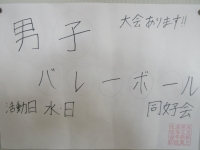 大会あります!!
男子
バレーボール
活動日 水、日 同好会